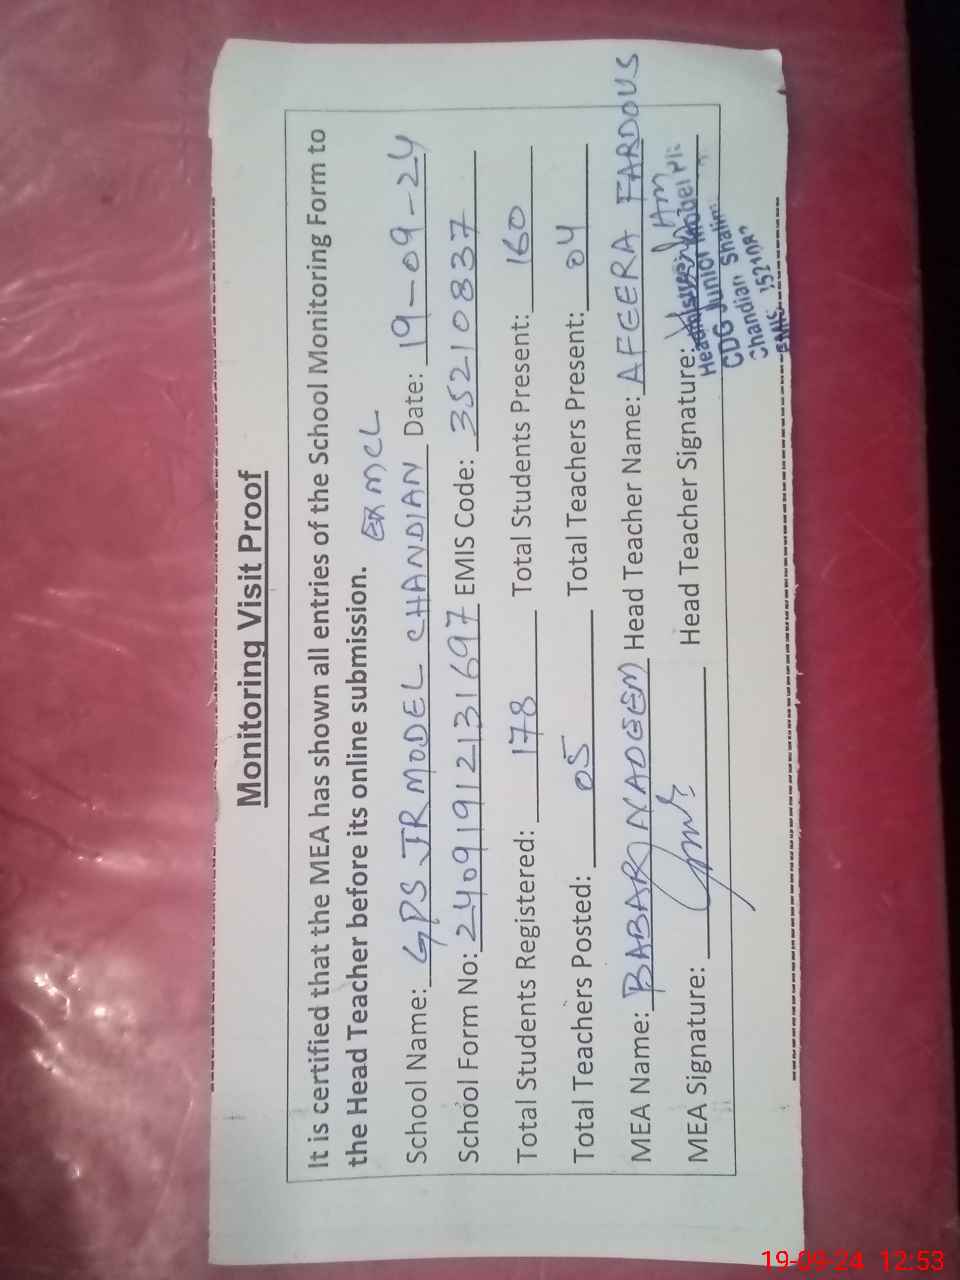 Monitoring Visit Proof
It is certified that the MEA has shown all entries of the School Monitoring Form to
the Head Teacher before its online submission.
EX MCL
School Name: GPS JR MODEL CHANDIAN Date: 19-09-24
School Form No: 24091912131697 EMIS Code: 35210837
Total Students Registered: 178 Total Students Present: 160
Total Teachers Posted: 05 Total Teachers Present: 04
MEA Name: BABAR NADEEM Head Teacher Name: AFEERA FARDOUS
MEA Signature: Head Teacher Signature:
CDG Junior Model
Chandian
EMIS
19-09-24 12:53